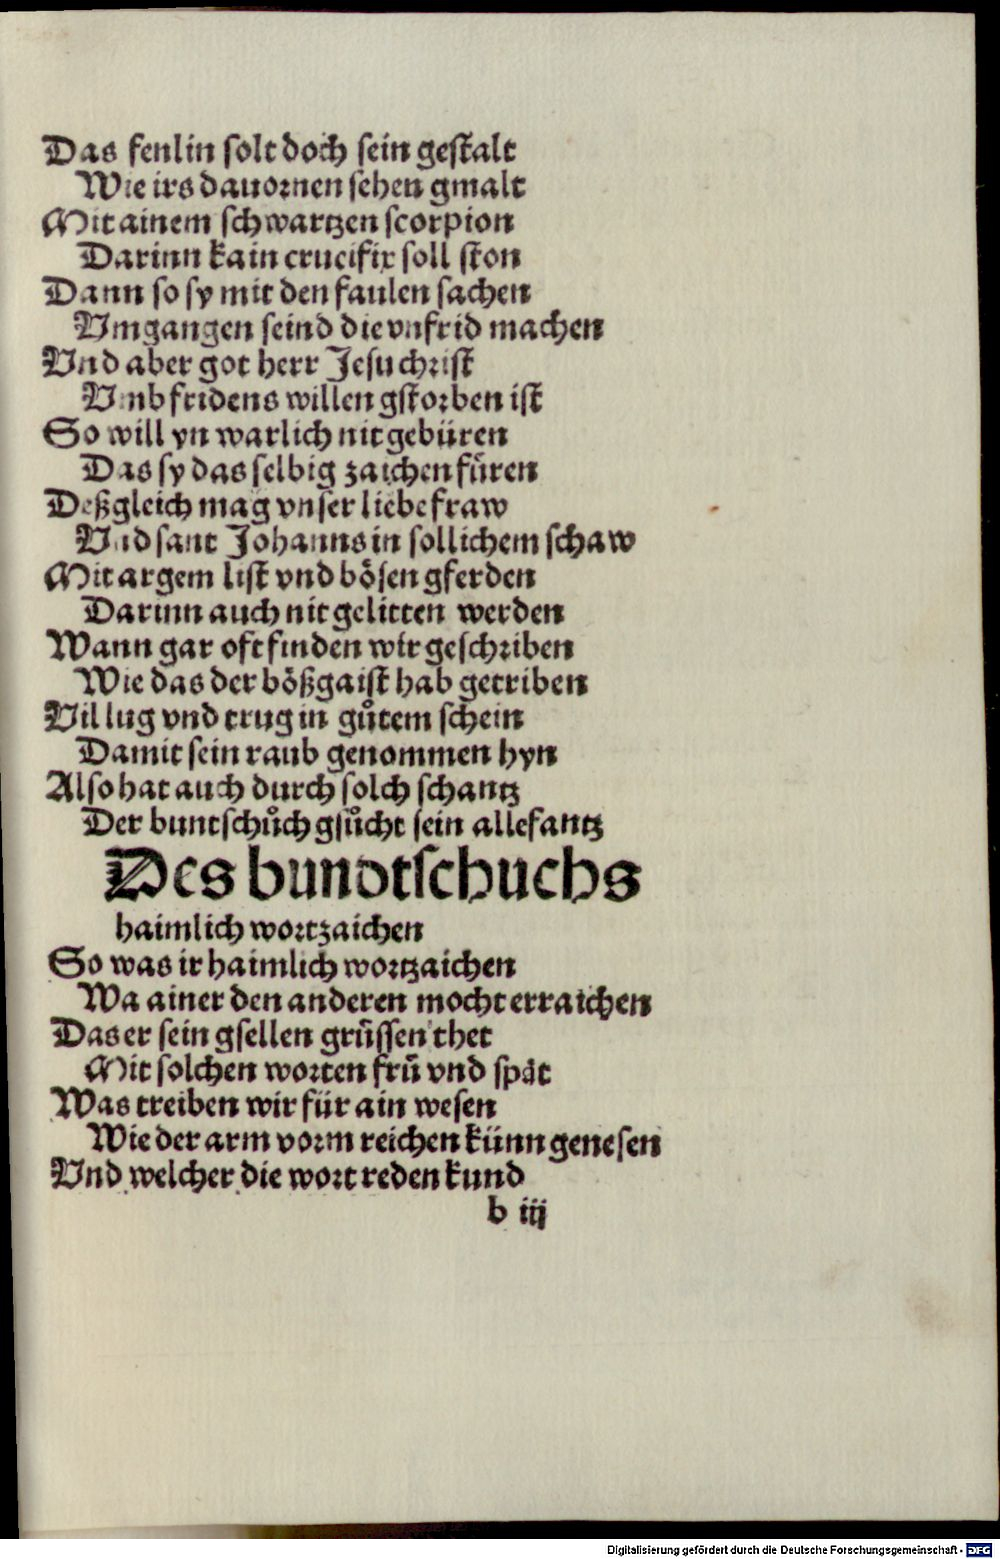 Das fenlin solt doch sein gestalt
Wie irs dauornen sehen gmalt
Mit ainem schwartzen scorpion
Darinn kain crucifix soll ston
Dann so sy mit den faulen sachen
Vmgangen seind die vnfrid machen
Vnd aber got herr Jesu christ
Vmb fridens willen gstorben ist
So will yn warlich nit gebüren
Das sy das selbig zaichen füren
Deßgleich mag vnser liebe fraw
Vnd sant Johanns in sollichem schaw
Mit argem list vnd bösen gferden
Darinn auch nit gelitten werden
Wann gar oft finden wir geschriben
Wie das der bößgaist hab getriben
Vil lug vnd trug in gůtem schein
Damit sein raub genommen hyn
Also hat auch durch solch schantz
Der buntschůch gsůcht sein allefantz
Des bundtschuchs
haimlich wortzaichen
So was ir haimlich wortzaichen
Wa ainer den anderen mocht erraichen
Das er sein gsellen grüssen thet
Mit solchen worten frü vnd spät
Was treiben wir für ain wesen
Wie der arm vorm reichen künn genesen
Vnd welcher die wort reden kund
b iij
Digitalisierung gefördert durch die Deutsche Forschungsgemeinschaft - DFG